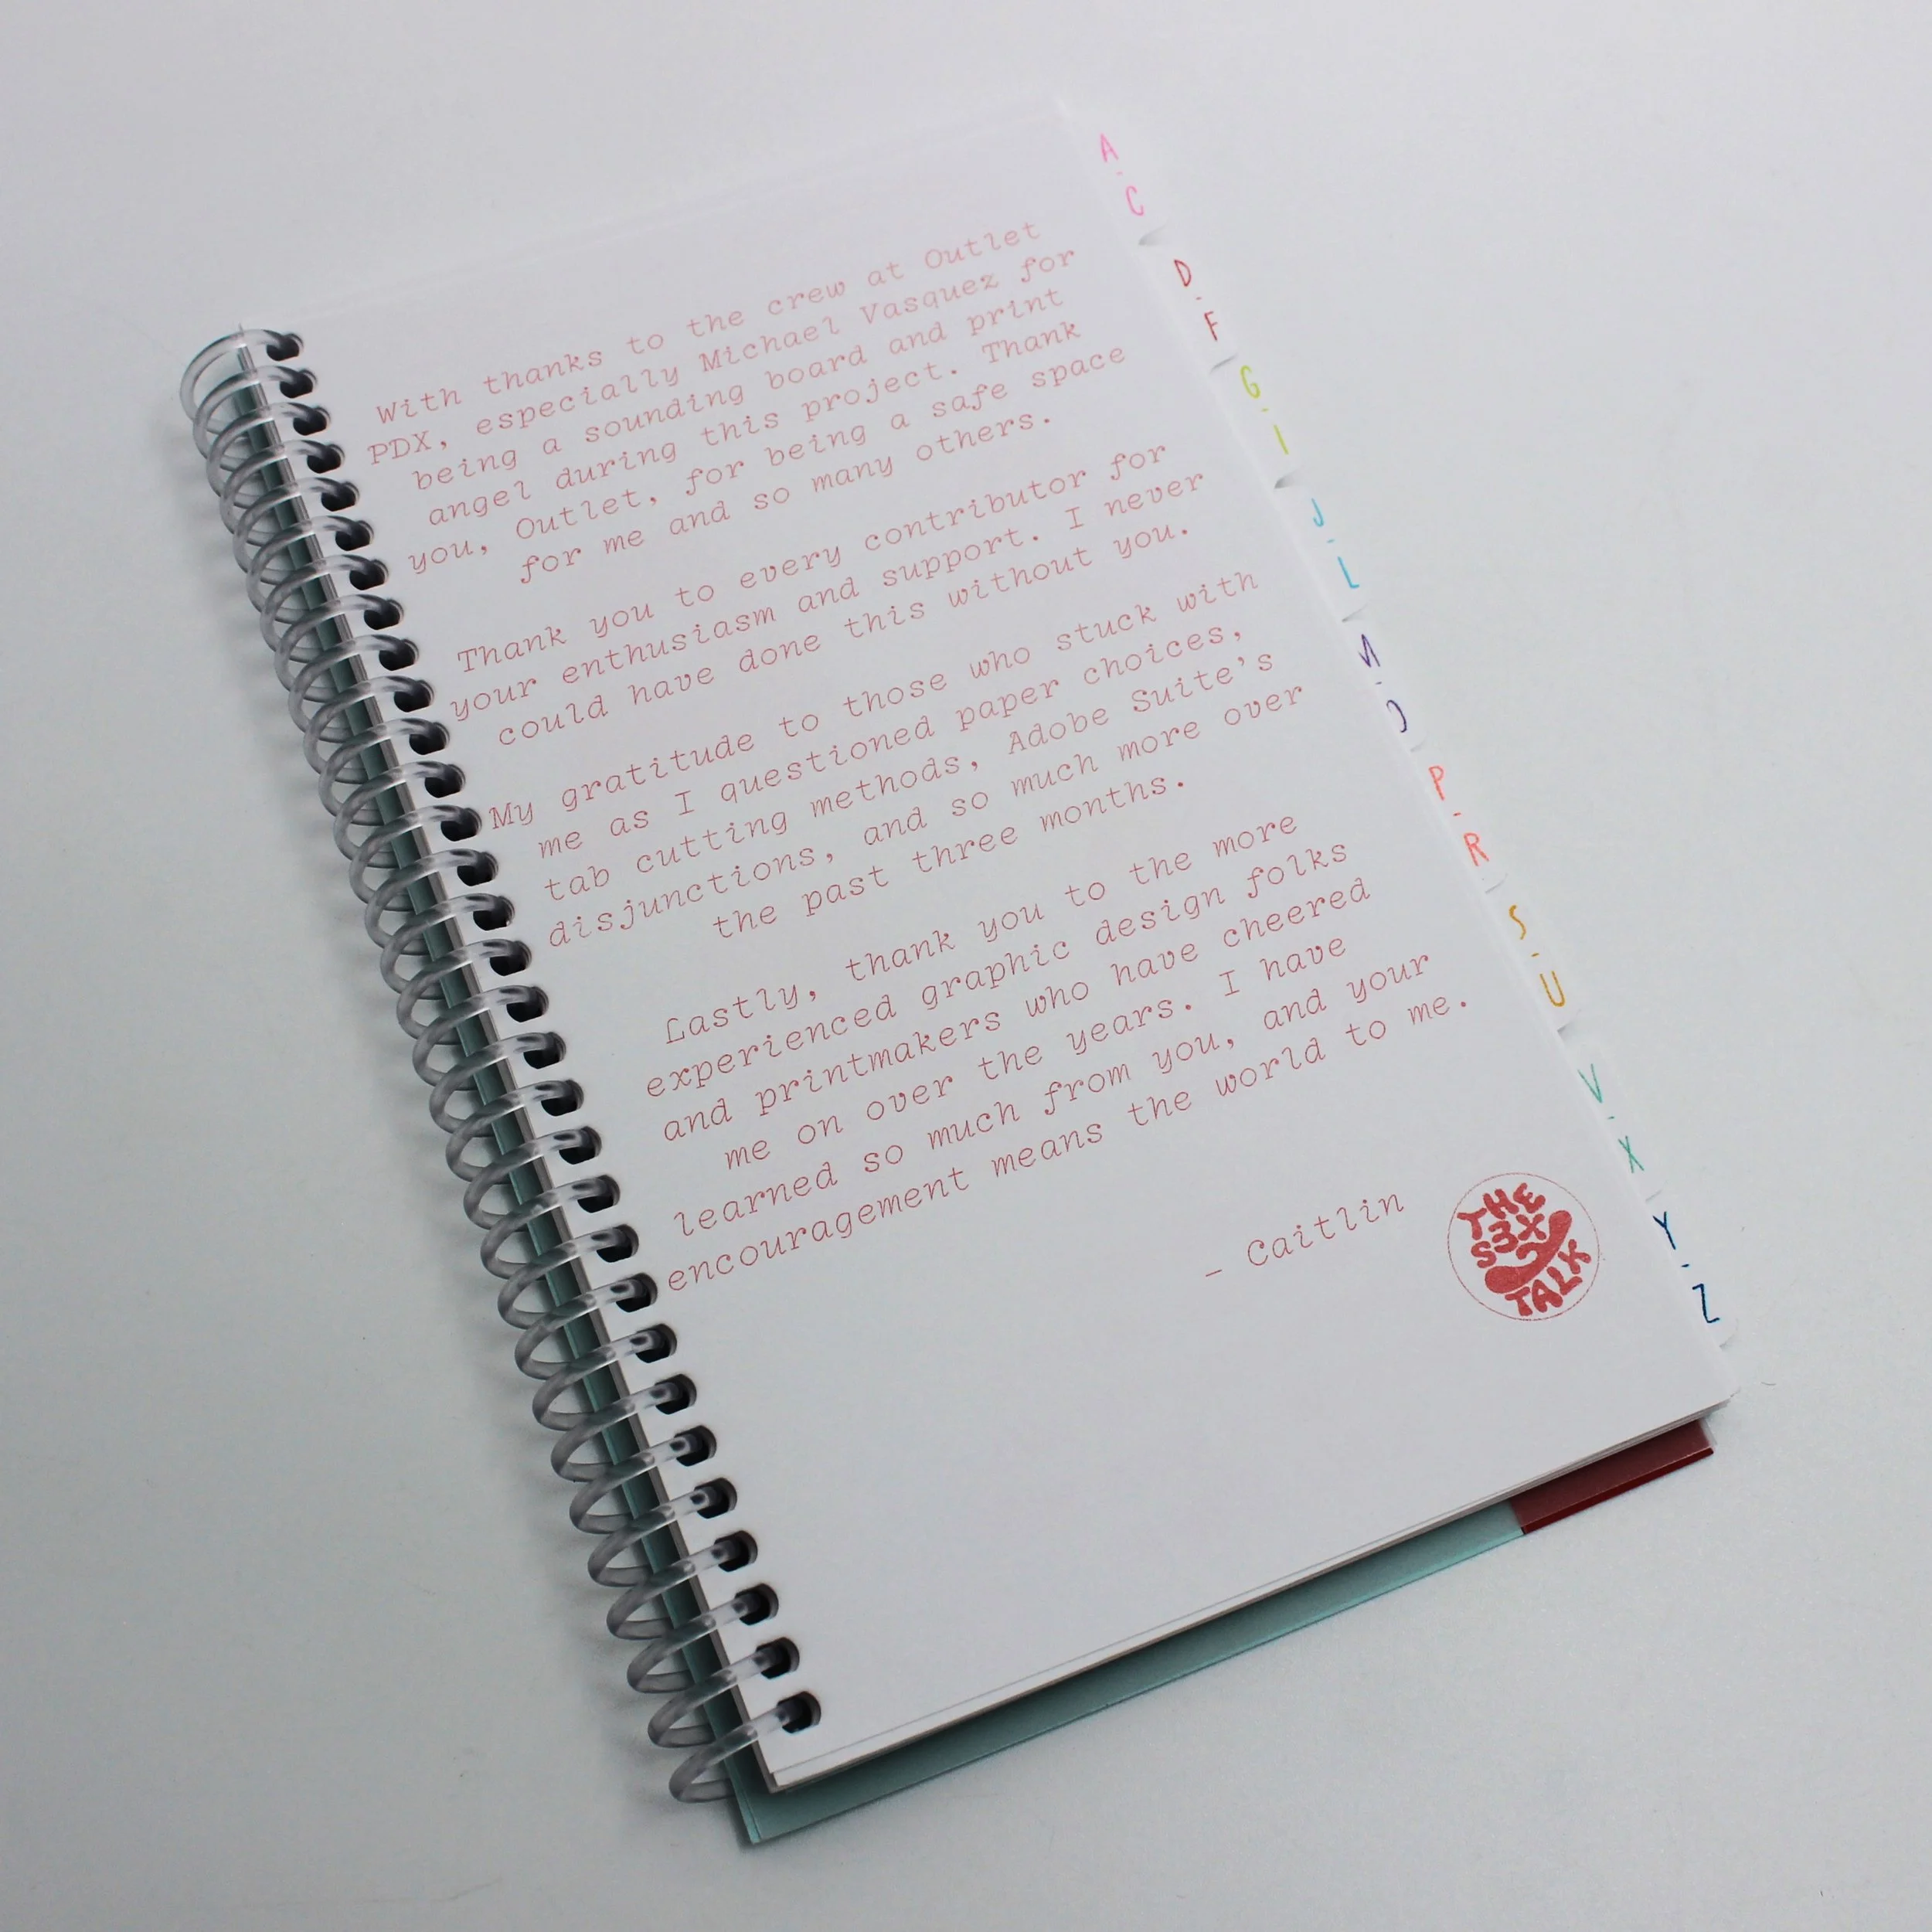 With thanks to the crew at Outlet
PDX, especially Michael Vasquez for
being a sounding board and print
angel during this project. Thank
you, Outlet, for being a safe space
for me and so many others.
Thank you to every contributor for
your enthusiasm and support. I never
could have done this without you.
My gratitude to those who stuck with
me as I questioned paper choices,
tab cutting methods, Adobe Suite's
disjunctions, and so much more over
the past three months.
Lastly, thank you to the more
experienced graphic design folks
and printmakers who have cheered
me on over the years. I have
learned so much from you, and your
encouragement means the world to me.
- Caitlin
THE
S3X
TALK
A-C
D-F
G-I
J-L
P-R
S-U
V-X
Y-Z